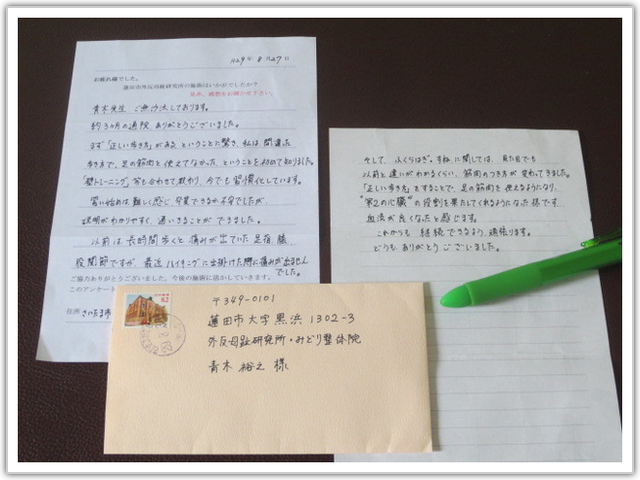 H29年 8月27日
お疲れ様でした。
蓮田市外反母趾研究所の施術はいかがでしたか?
是非、感想をお聞かせ下さい。
青木先生 ご無沙汰しております。
約3ヵ月の通院、ありがとうございました。
まず「正しい歩き方」がある、ということに驚き、私は間違った
歩き方で、足の筋肉を使えてなかった、ということを初めて知りました。
「壁トレーニング」等も合わせて教わり、今でも習慣化しています。
習い始めは、難しく感じ、卒業できるか不安でしたが、
説明がわかりやすく、通いきることができました。
以前は長時間歩くと痛みが出ていた足首、膝
股関節ですが、最近ハイキングに出掛けた際に痛みが出ません
でした。
ご協力ありがとうございました。今後の施術に活かしていきます。
このアンケー
住所 さいたま市
そして、ふくらはぎ、すね、に関しては、見た目でも
以前と違いがわかるくらい、筋肉のつき方が変わってきました。
「正しい歩き方」をすることで、足の筋肉を使えるようになり、
"第2の心臓"の役割を果たしてくれるようになった様です。
血流が良くなったと感じます。
これからも 継続できるよう、頑張ります。
どうも ありがとうございました。
82
〒349-0101
蓮田市大字黒浜1302-3
外反母趾研究所・みどり整体院
青木 裕之 様